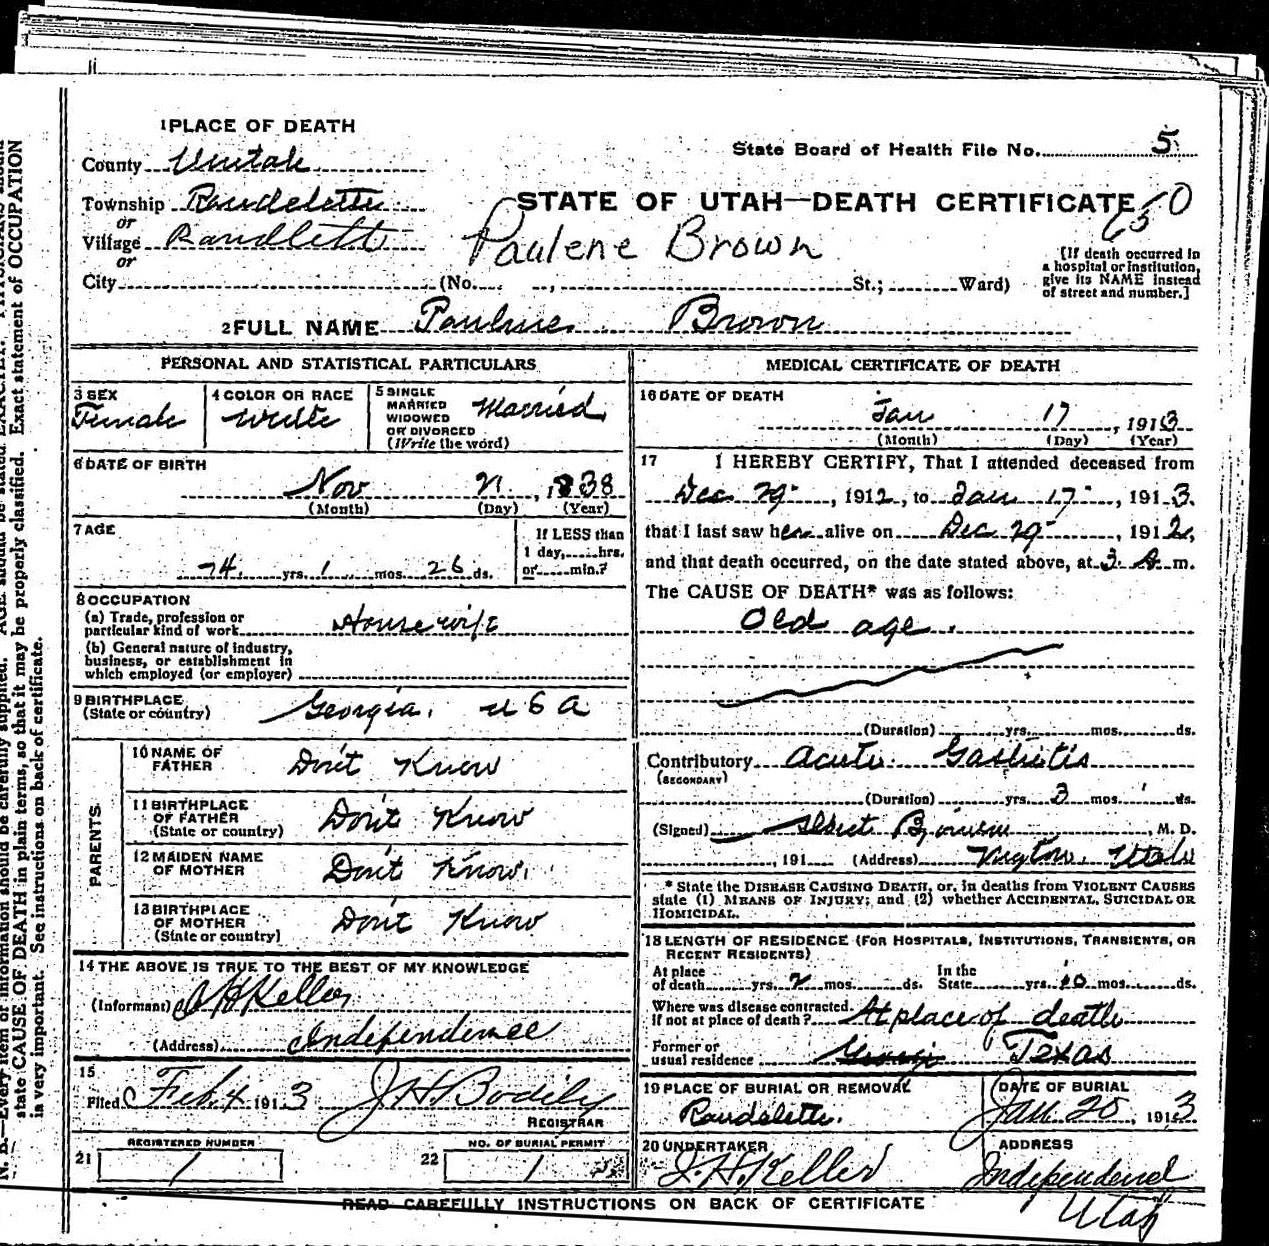 1 PLACE OF DEATH
County Uintah
State Board of Health File No. 5
Township Randelette
or
STATE OF UTAH—DEATH CERTIFICATE
Village Randlett
Paulene Brown
or
[If death occurred in
a hospital or institution,
give its NAME instead
of street and number.]
City (No. , St.; Ward)
2 FULL NAME Pauline Brown
PERSONAL AND STATISTICAL PARTICULARS
3 SEX
Female
4 COLOR OR RACE
White
5 SINGLE
MARRIED
WIDOWED
OR DIVORCED
(Write the word)
Married
6 DATE OF BIRTH
Nov 21, 1838
(Month) (Day) (Year)
7 AGE
74 yrs. 1 mos. 26 ds.
If LESS than
1 day, hrs.
or min.?
8 OCCUPATION
(a) Trade, profession or
particular kind of work Housewife
(b) General nature of industry,
business, or establishment in
which employed (or employer)
9 BIRTHPLACE
(State or country) Georgia. U S A
PARENTS
10 NAME OF
FATHER Don't Know
11 BIRTHPLACE
OF FATHER
(State or country) Don't Know
12 MAIDEN NAME
OF MOTHER Don't Know.
13 BIRTHPLACE
OF MOTHER
(State or country) Don't Know
14 THE ABOVE IS TRUE TO THE BEST OF MY KNOWLEDGE
(Informant) Keller
(Address) Independence
15
Filed Feb. 4 1913 J H Bodily
REGISTRAR
REGISTERED NUMBER
21 1
NO. OF BURIAL PERMIT
22 1
MEDICAL CERTIFICATE OF DEATH
16 DATE OF DEATH
Jan 17, 1913
(Month) (Day) (Year)
17 I HEREBY CERTIFY, That I attended deceased from
Dec 29, 1912, to Jan 17, 1913.
that I last saw her alive on Dec 29, 1912,
and that death occurred, on the date stated above, at 3 A. m.
The CAUSE OF DEATH* was as follows:
Old age.
(Duration) yrs. mos. ds.
Contributory Acute Gastritis
(SECONDARY)
(Duration) yrs. 3 mos. ds.
(Signed) , M. D.
, 191 (Address) Utah
* State the DISEASE CAUSING DEATH, or, in deaths from VIOLENT CAUSES
state (1) MEANS OF INJURY; and (2) whether ACCIDENTAL, SUICIDAL OR
HOMICIDAL.
18 LENGTH OF RESIDENCE (FOR HOSPITALS, INSTITUTIONS, TRANSIENTS, OR
RECENT RESIDENTS)
At place
of death yrs. 2 mos. ds.
In the
State yrs. 10 mos. ds.
Where was disease contracted,
if not at place of death? At place of death
Former or
usual residence Texas
19 PLACE OF BURIAL OR REMOVAL
Randelette.
DATE OF BURIAL
Jan 20, 1913
20 UNDERTAKER
J. H. Keller
ADDRESS
Independence
Utah
READ CAREFULLY INSTRUCTIONS ON BACK OF CERTIFICATE
state CAUSE OF DEATH in plain terms, so that it may be properly classified. Exact statement of OCCUPATION
is very important. See instructions on back of certificate.